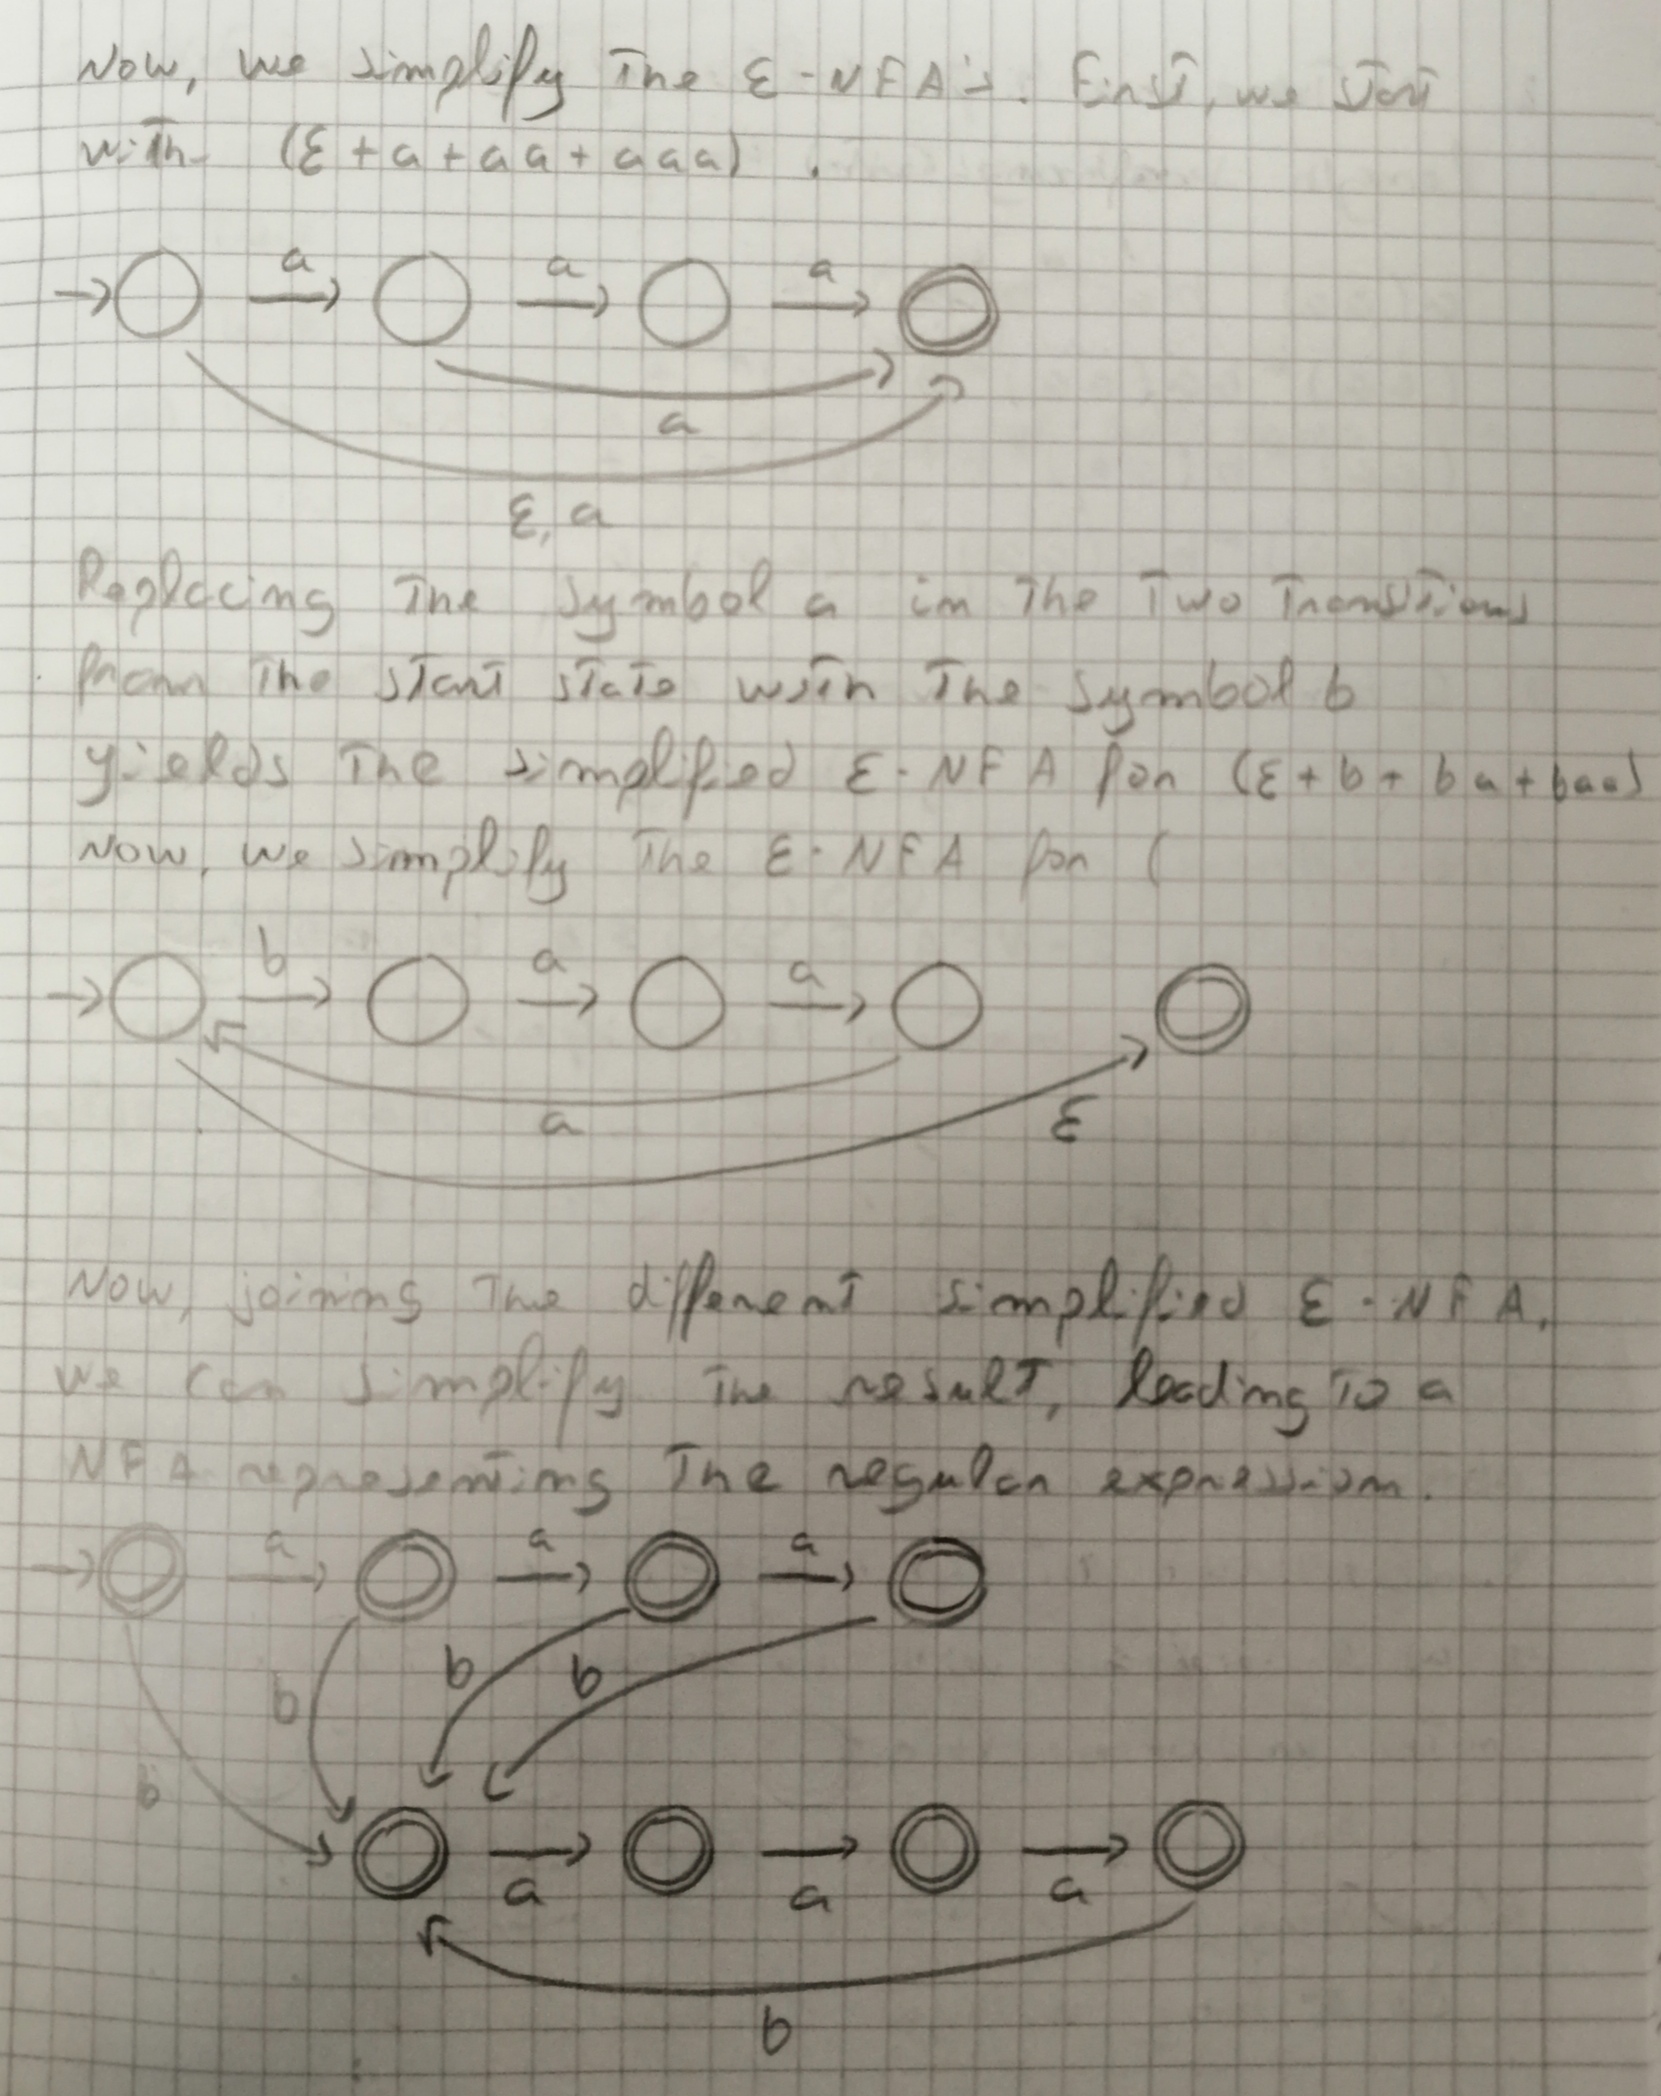 Now, we simplify the ε-NFA's. First, we start
with (ε + a + aa + aaa).
a a a
a
ε, a
Replacing the symbol a in the two transitions
from the start state with the symbol b
yields the simplified ε-NFA for (ε + b + ba + baa)
Now, we simplify the ε-NFA for (
b a a
a
ε
Now, joining the different simplified ε-NFA,
we can simplify the result, leading to a
NFA representing the regular expression.
a a a
b b b
b
a a a
b